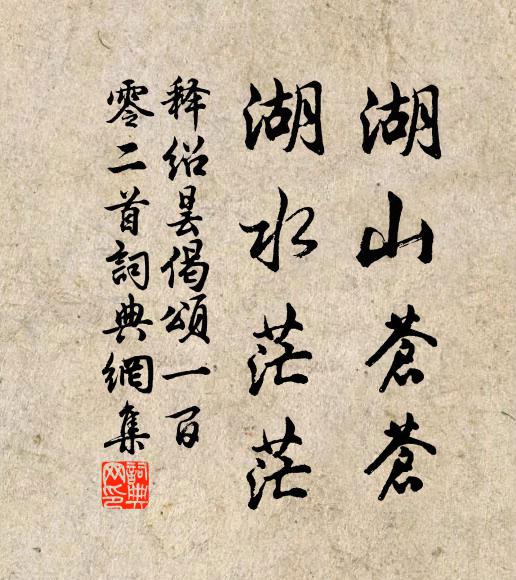 湖山蒼蒼
湖水茫茫
释绍昙偈頌一百
零二首詞典網集
詞典网印